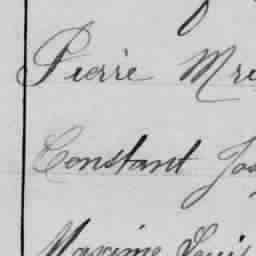 Pierre Mri
Constant Jos
Maxime Louis